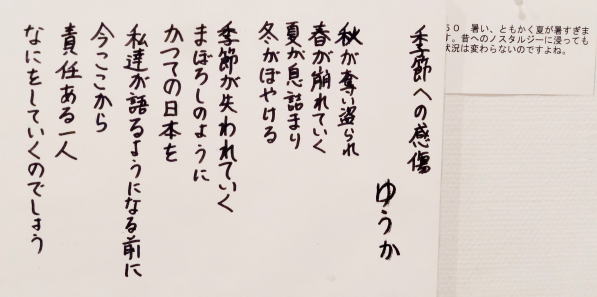 季節への感傷
ゆうか
秋が奪い盗られ
春が崩れていく
夏が息詰まり
冬がぼやける
季節が失われていく
まぼろしのように
かつての日本を
私達が語るようになる前に
今ここから
責任ある一人
なにをしていくのでしょう
50 暑い、ともかく夏が暑すぎま
す。昔へのノスタルジーに浸っても
状況は変わらないのですよね。